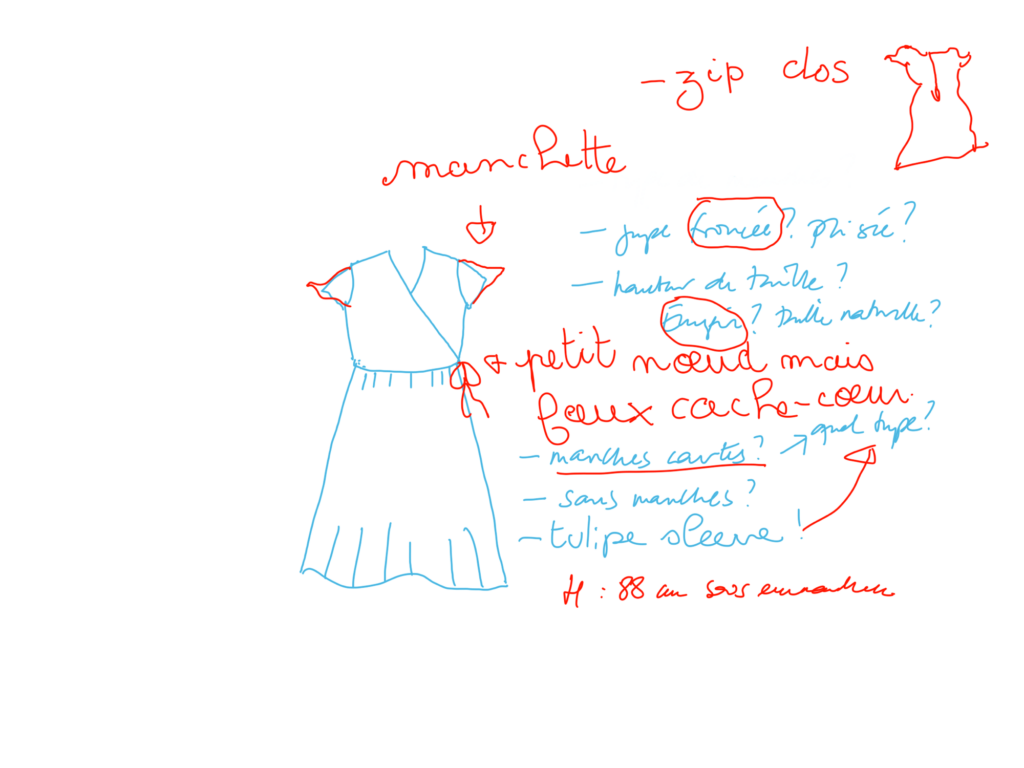 - zip dos
manchette
- jupe froncée? plissée?
- hauteur de taille?
Empire? taille naturelle?
petit nœud mais
faux cache-cœur.
- manches courtes? → quel type?
- sans manches?
- tulipe sleeve!
H : 88 cm sous emmanchure